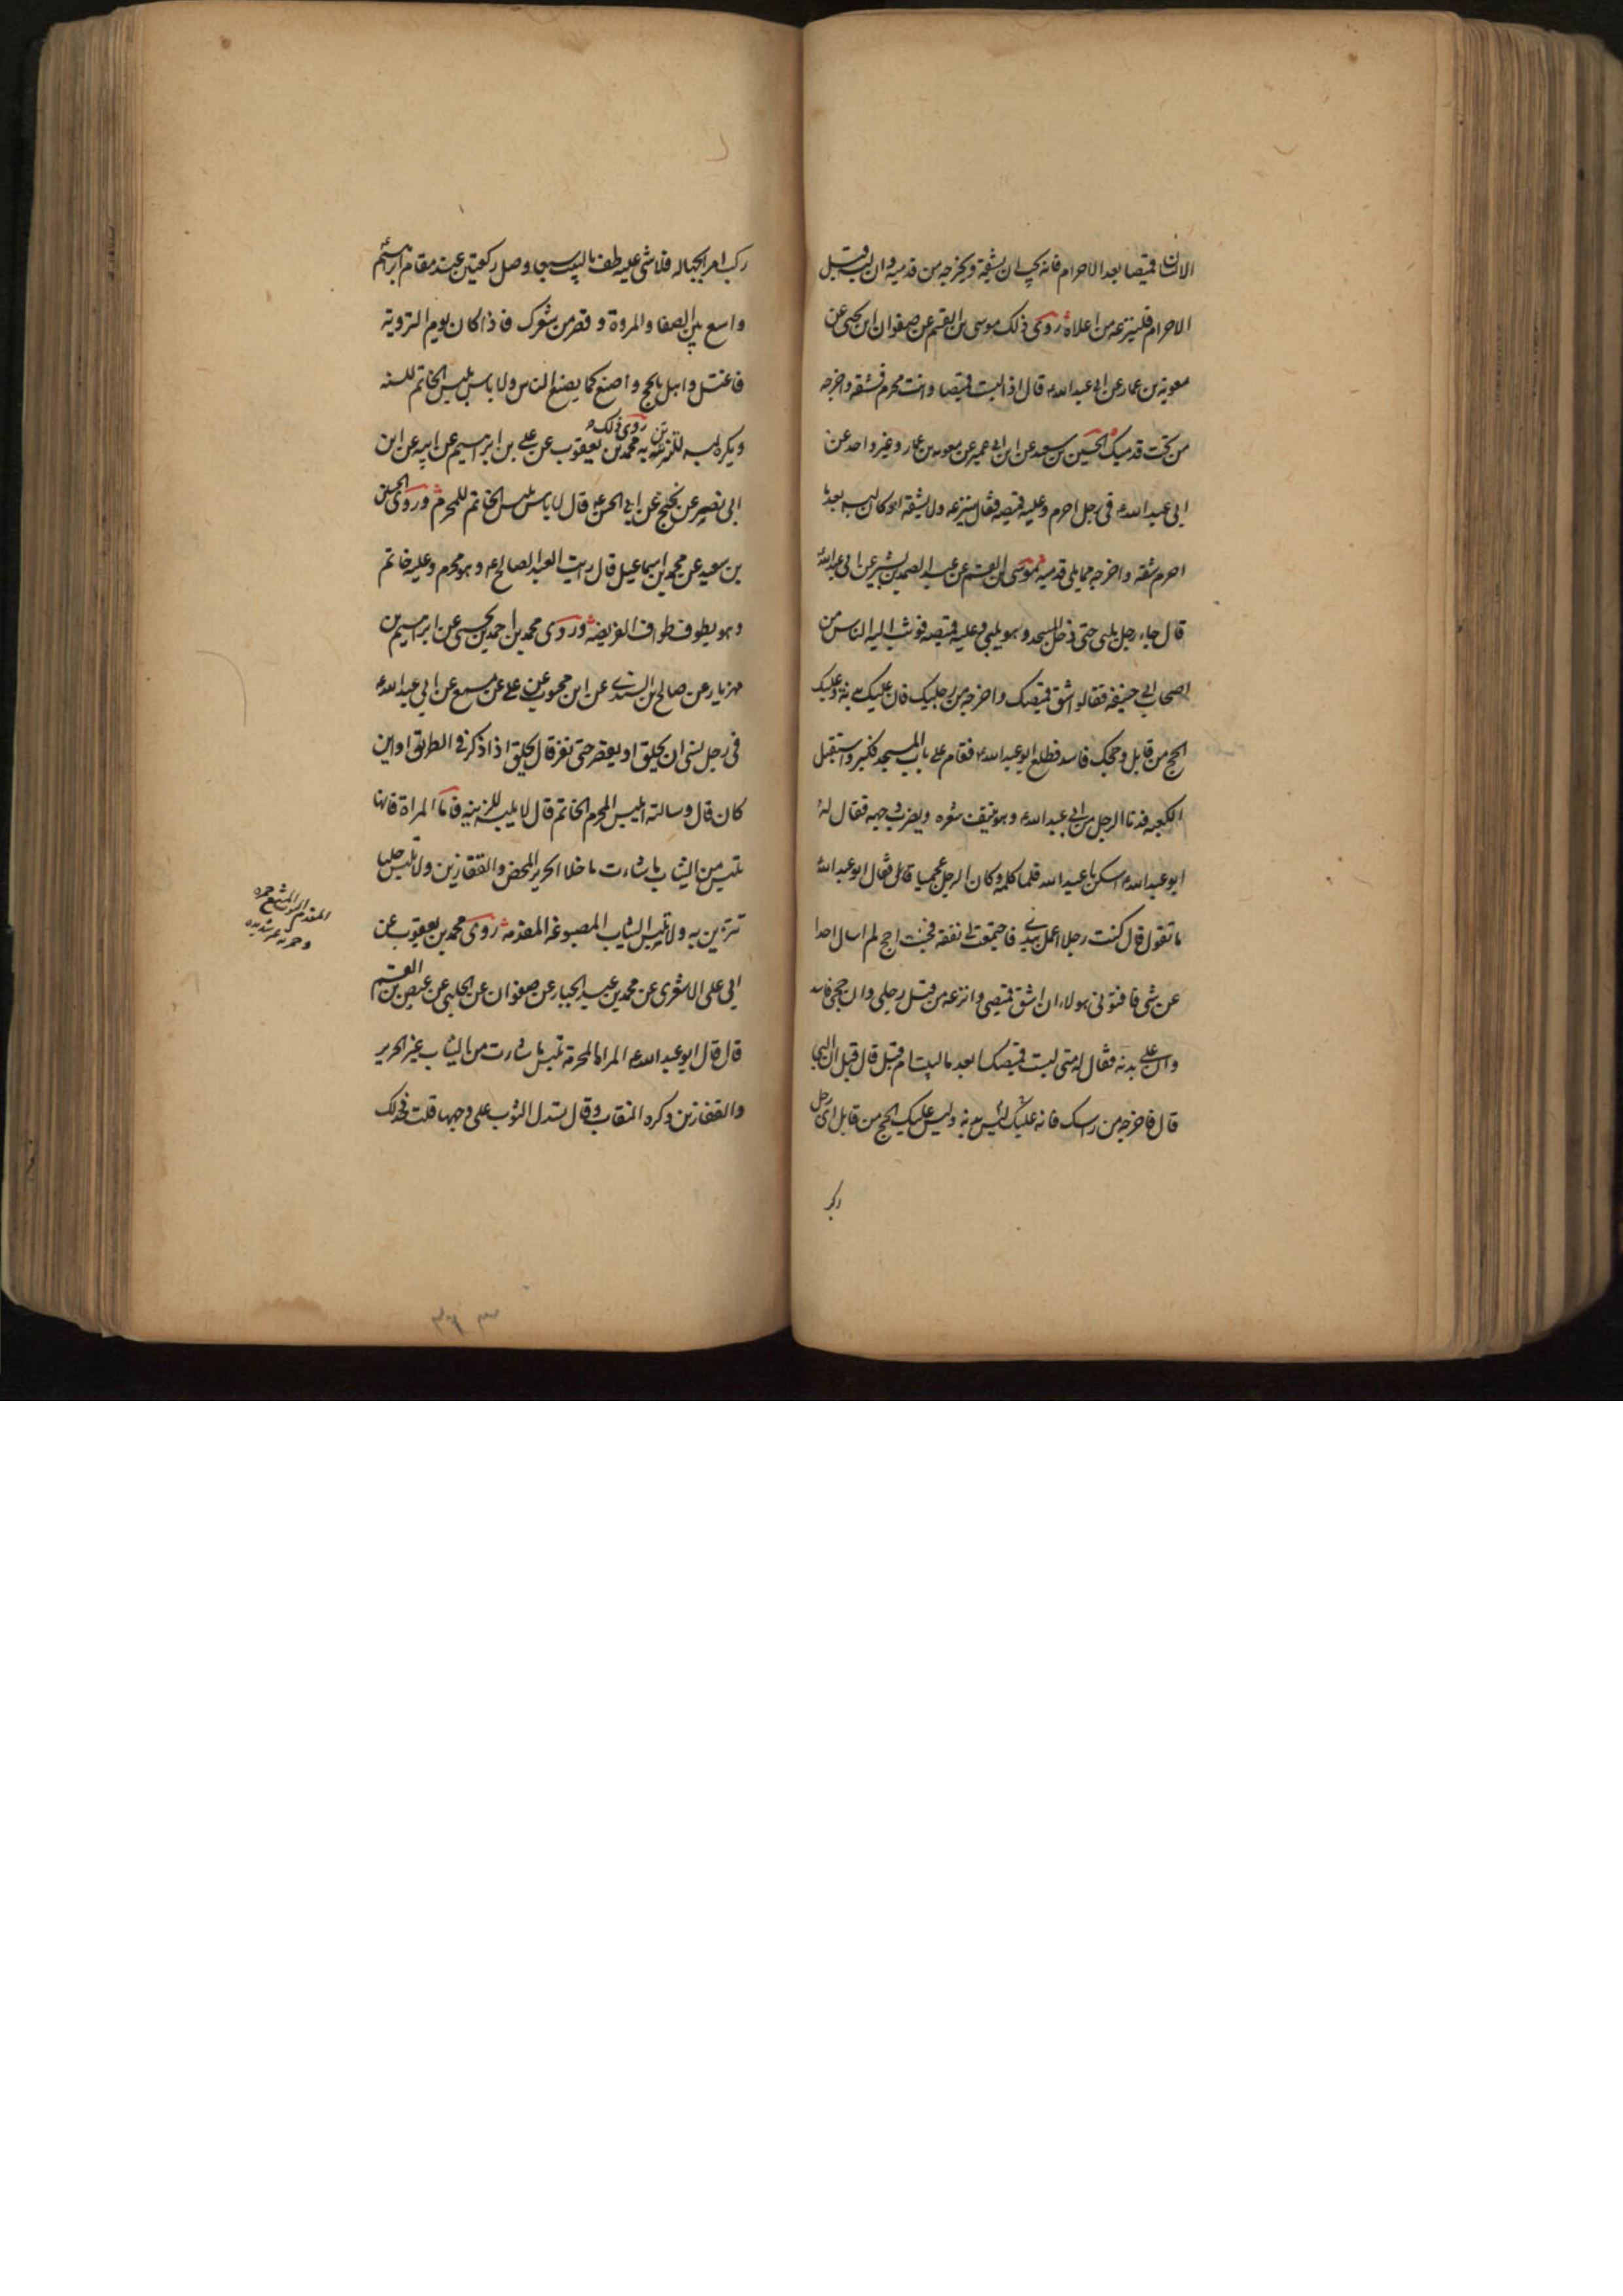 الانسان قميصا بعد الاحرام فانه يجب ان يشقه ويخرجه من قدميه وان لبسه قبل
الاحرام فلينزعه من اعلاه روى ذلك موسى بن القسم عن صفوان ابن يحيى عن
معوية بن عمار عن ابى عبد الله ع قال اذا لبست قميصا وانت محرم فشقه واخرجه
من تحت قدميك الحسين بن سعيد عن ابن ابى عمير عن معويه بن عمار وغير واحد عن
ابى عبد الله ع فى رجل احرم وعليه قميصه فقال ينزعه ولا يشقه وان كان لبسه بعد ما
احرم شقه واخرجه مما يلى قدميه موسى بن القسم عن عبد الصمد بن بشير عن ابى عبد الله ع
قال جاء رجل يلبى حتى دخل المسجد وهو يلبى وعليه قميصه فوثب اليه الناس من
اصحاب ابى حنيفه فقالوا شق قميصك واخرجه من رجليك فان عليك بدنة وعليك
الحج من قابل وحجك فاسد فطلع ابو عبد الله ع فقام على باب المسجد فكبر واستقبل
الكعبه فدنا الرجل من ابى عبد الله ع وهو ينتف شعره ويضرب وجهه فقال له
ابو عبد الله ع اسكن يا عبد الله فلما كلمه وكان الرجل عجميا قال فقال ابو عبد الله ع
ما تقول قال كنت رجلا اعمل بيدى فاجتمعت لى نفقه فجئت احج لم اسال احدا
عن شى فافتونى هولاء ان اشق قميصى وانزعه من قبل رجلى وان حجى فاسد
وان على بدنه فقال له متى لبست قميصك ابعد ما لبيت ام قبل قال قبل ان البى
قال فاخرجه من راسك فانه ليس عليك بدنه وليس عليك الحج من قابل اى رجل
ركب
ركب امرا بجهاله فلا شى عليه طف بالبيت سبعا وصل ركعتين عند مقام ابراهيم
واسع بين الصفا والمروة وقصر من شعرك فاذا كان يوم الترويه
فاغتسل واهل بالحج واصنع كما يصنع الناس ولا باس بلبس الخاتم للسنه
ويكره لبسه للتزين به روى ذلك محمد بن يعقوب عن على بن ابرهيم عن ابيه عن ابن
ابى نصير عن نجيح عن ابى الحسن ع قال لا باس بلبس الخاتم للمحرم وروى الحسين
بن سعيد عن محمد بن اسماعيل قال رايت العبد الصالح ع وهو محرم وعليه خاتم
وهو يطوف طواف الفريضه وروى محمد بن احمد بن يحيى عن ابرهيم بن
مهزيار عن صالح بن السندى عن ابن محبوب عن على عن مسمع عن ابى عبد الله ع
فى رجل نسى ان يحلق او يقصر حتى نفر قال يحلق اذا ذكر فى الطريق او اين
كان قال وسالته ايلبس المحرم الخاتم قال لا يلبسه للزينه فاما المراة فانها
تلبس من الثياب ما شاءت ما خلا الحرير المحض والقفازين ولا تلبس حليا
تتزين به ولا تلبس الثياب المصبوغه المفدمه روى محمد بن يعقوب عن
ابى على الاشعرى عن محمد بن عبد الجبار عن صفوان عن الحلبى عن عيص بن القسم
قال قال ابو عبد الله ع المراة المحرمة تلبس ما شاءت من الثياب غير الحرير
والقفازين وكره النقاب وقال تسدل الثوب على وجهها قلت حد ذلك
المفدم الثوب المشبع حمره